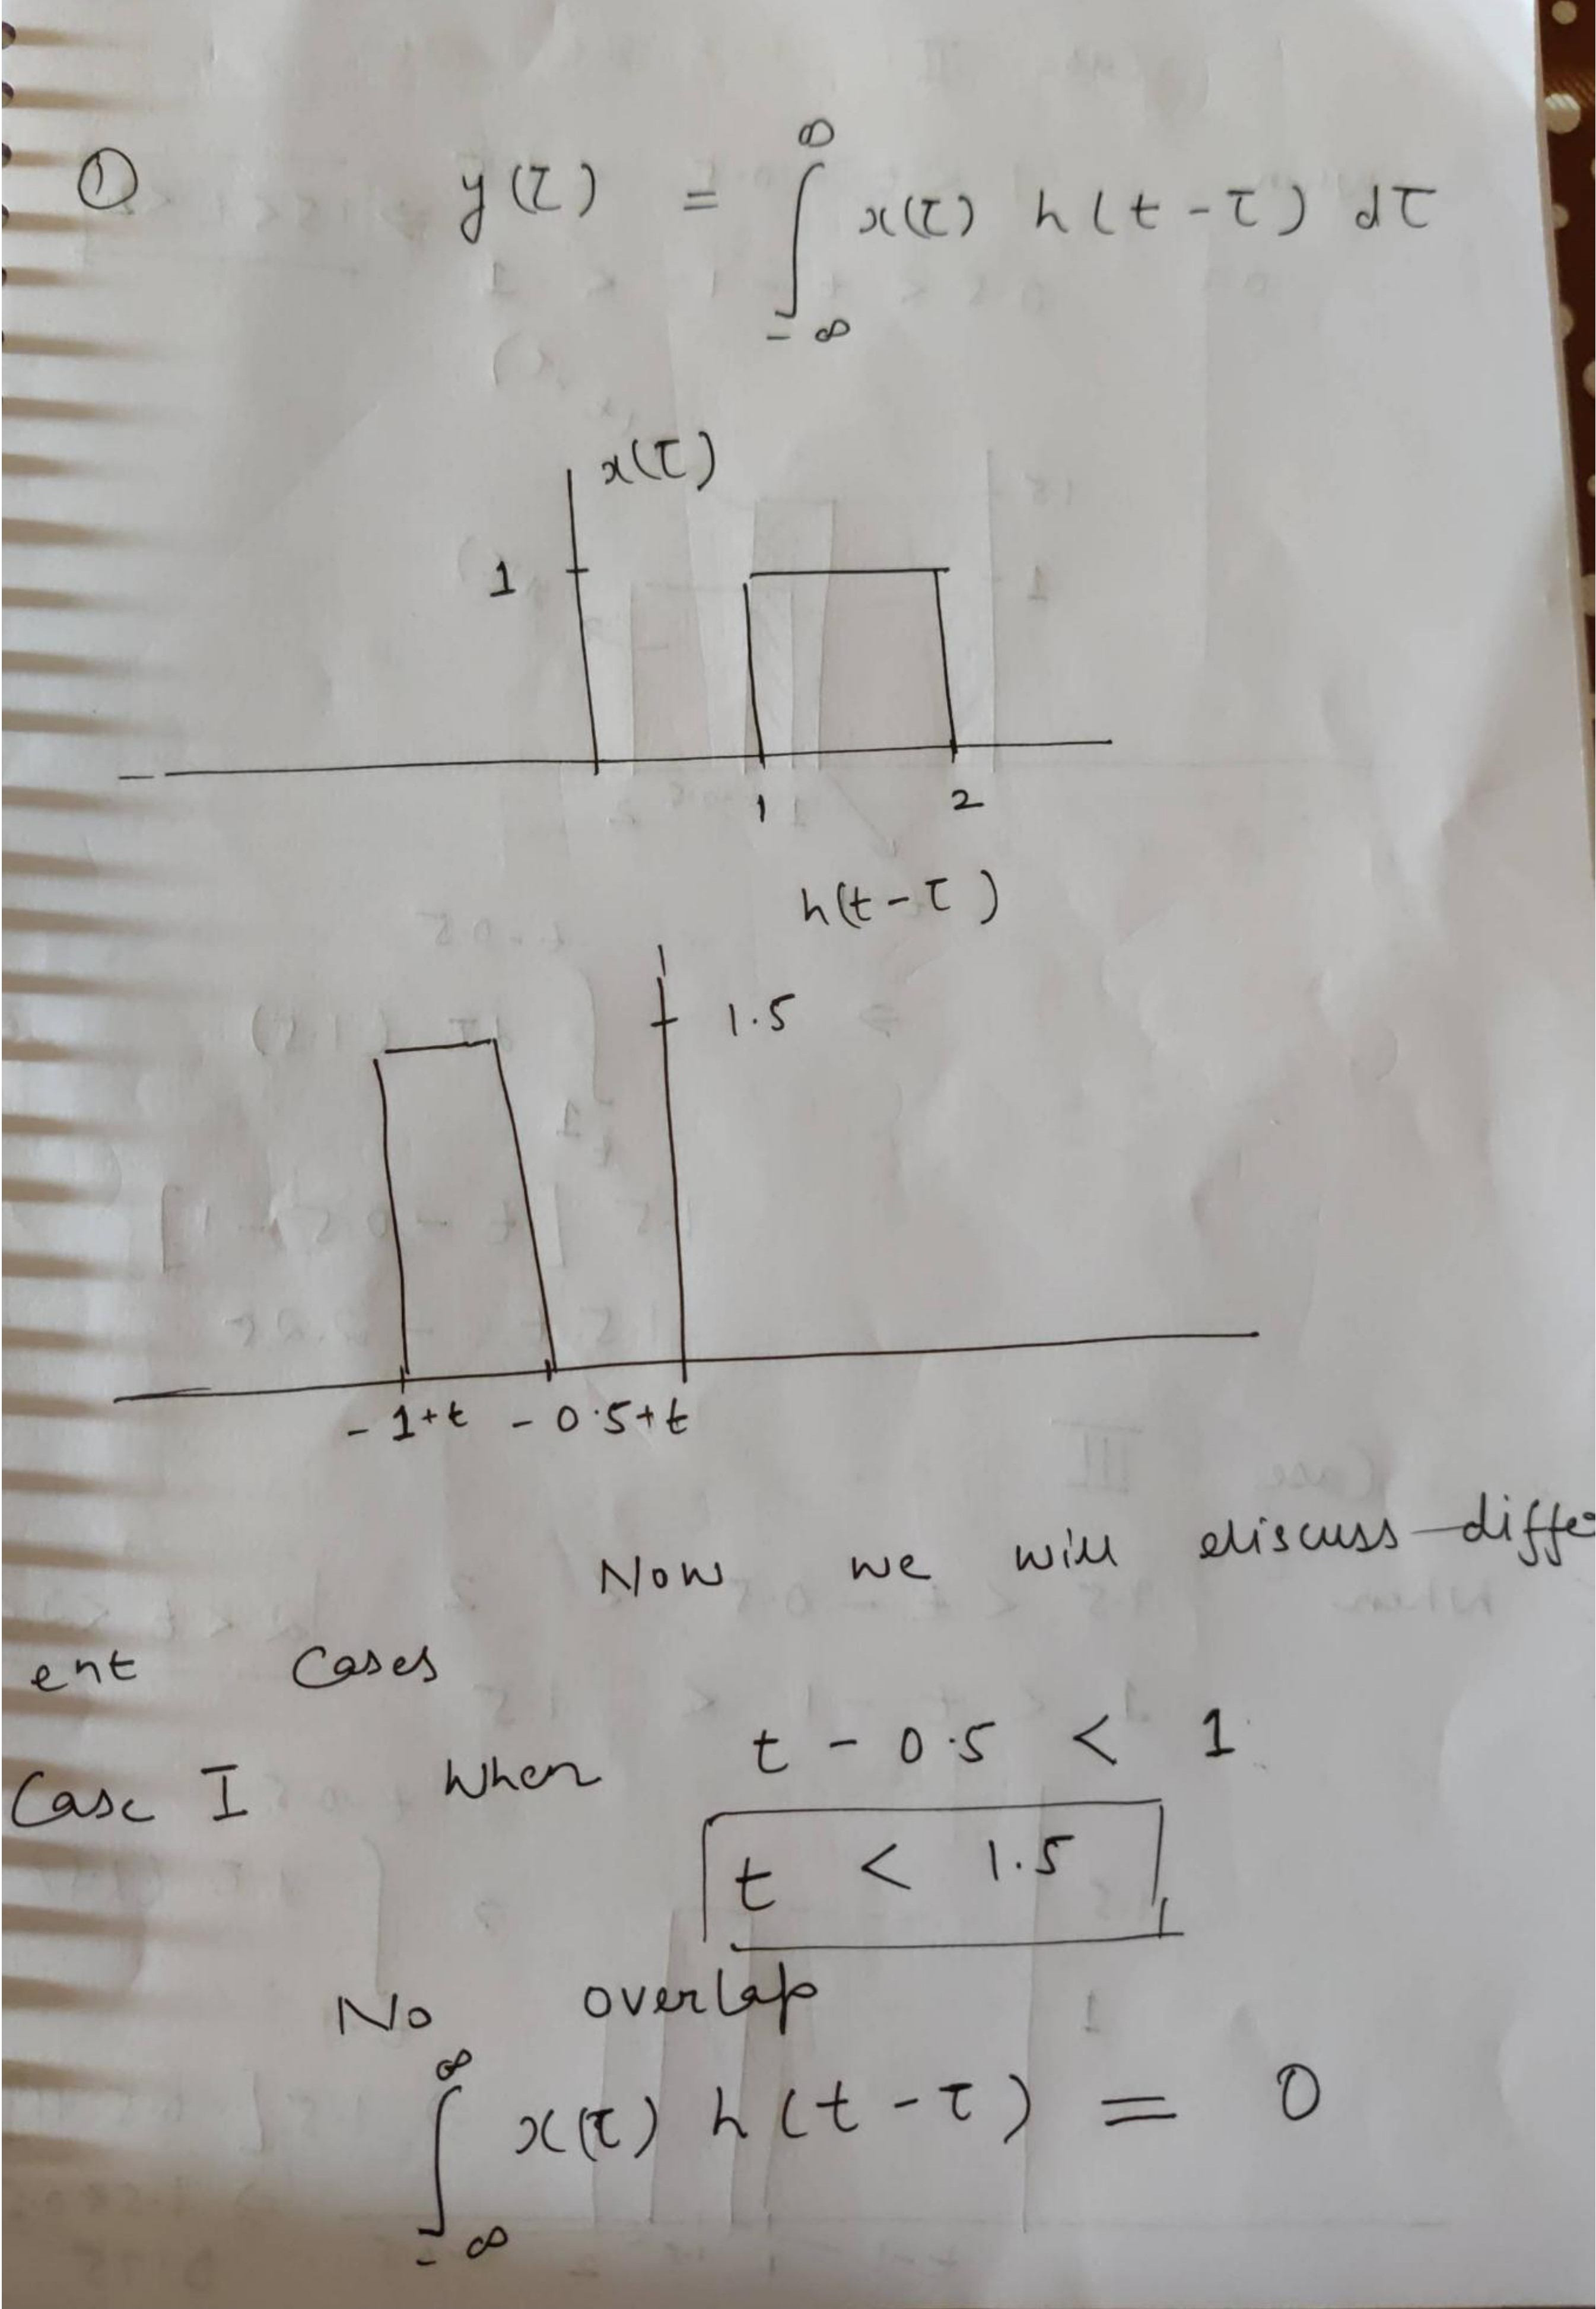 ① y(τ) = ∫ x(τ) h(t-τ) dτ
∞
-∞
x(τ)
1
1 2
h(t-τ)
1.5
-1+t -0.5+t
Now we will discuss differ
ent cases
Case I when t - 0.5 < 1
t < 1.5
No overlap
∞
∫ x(τ) h(t-τ) = 0
-∞